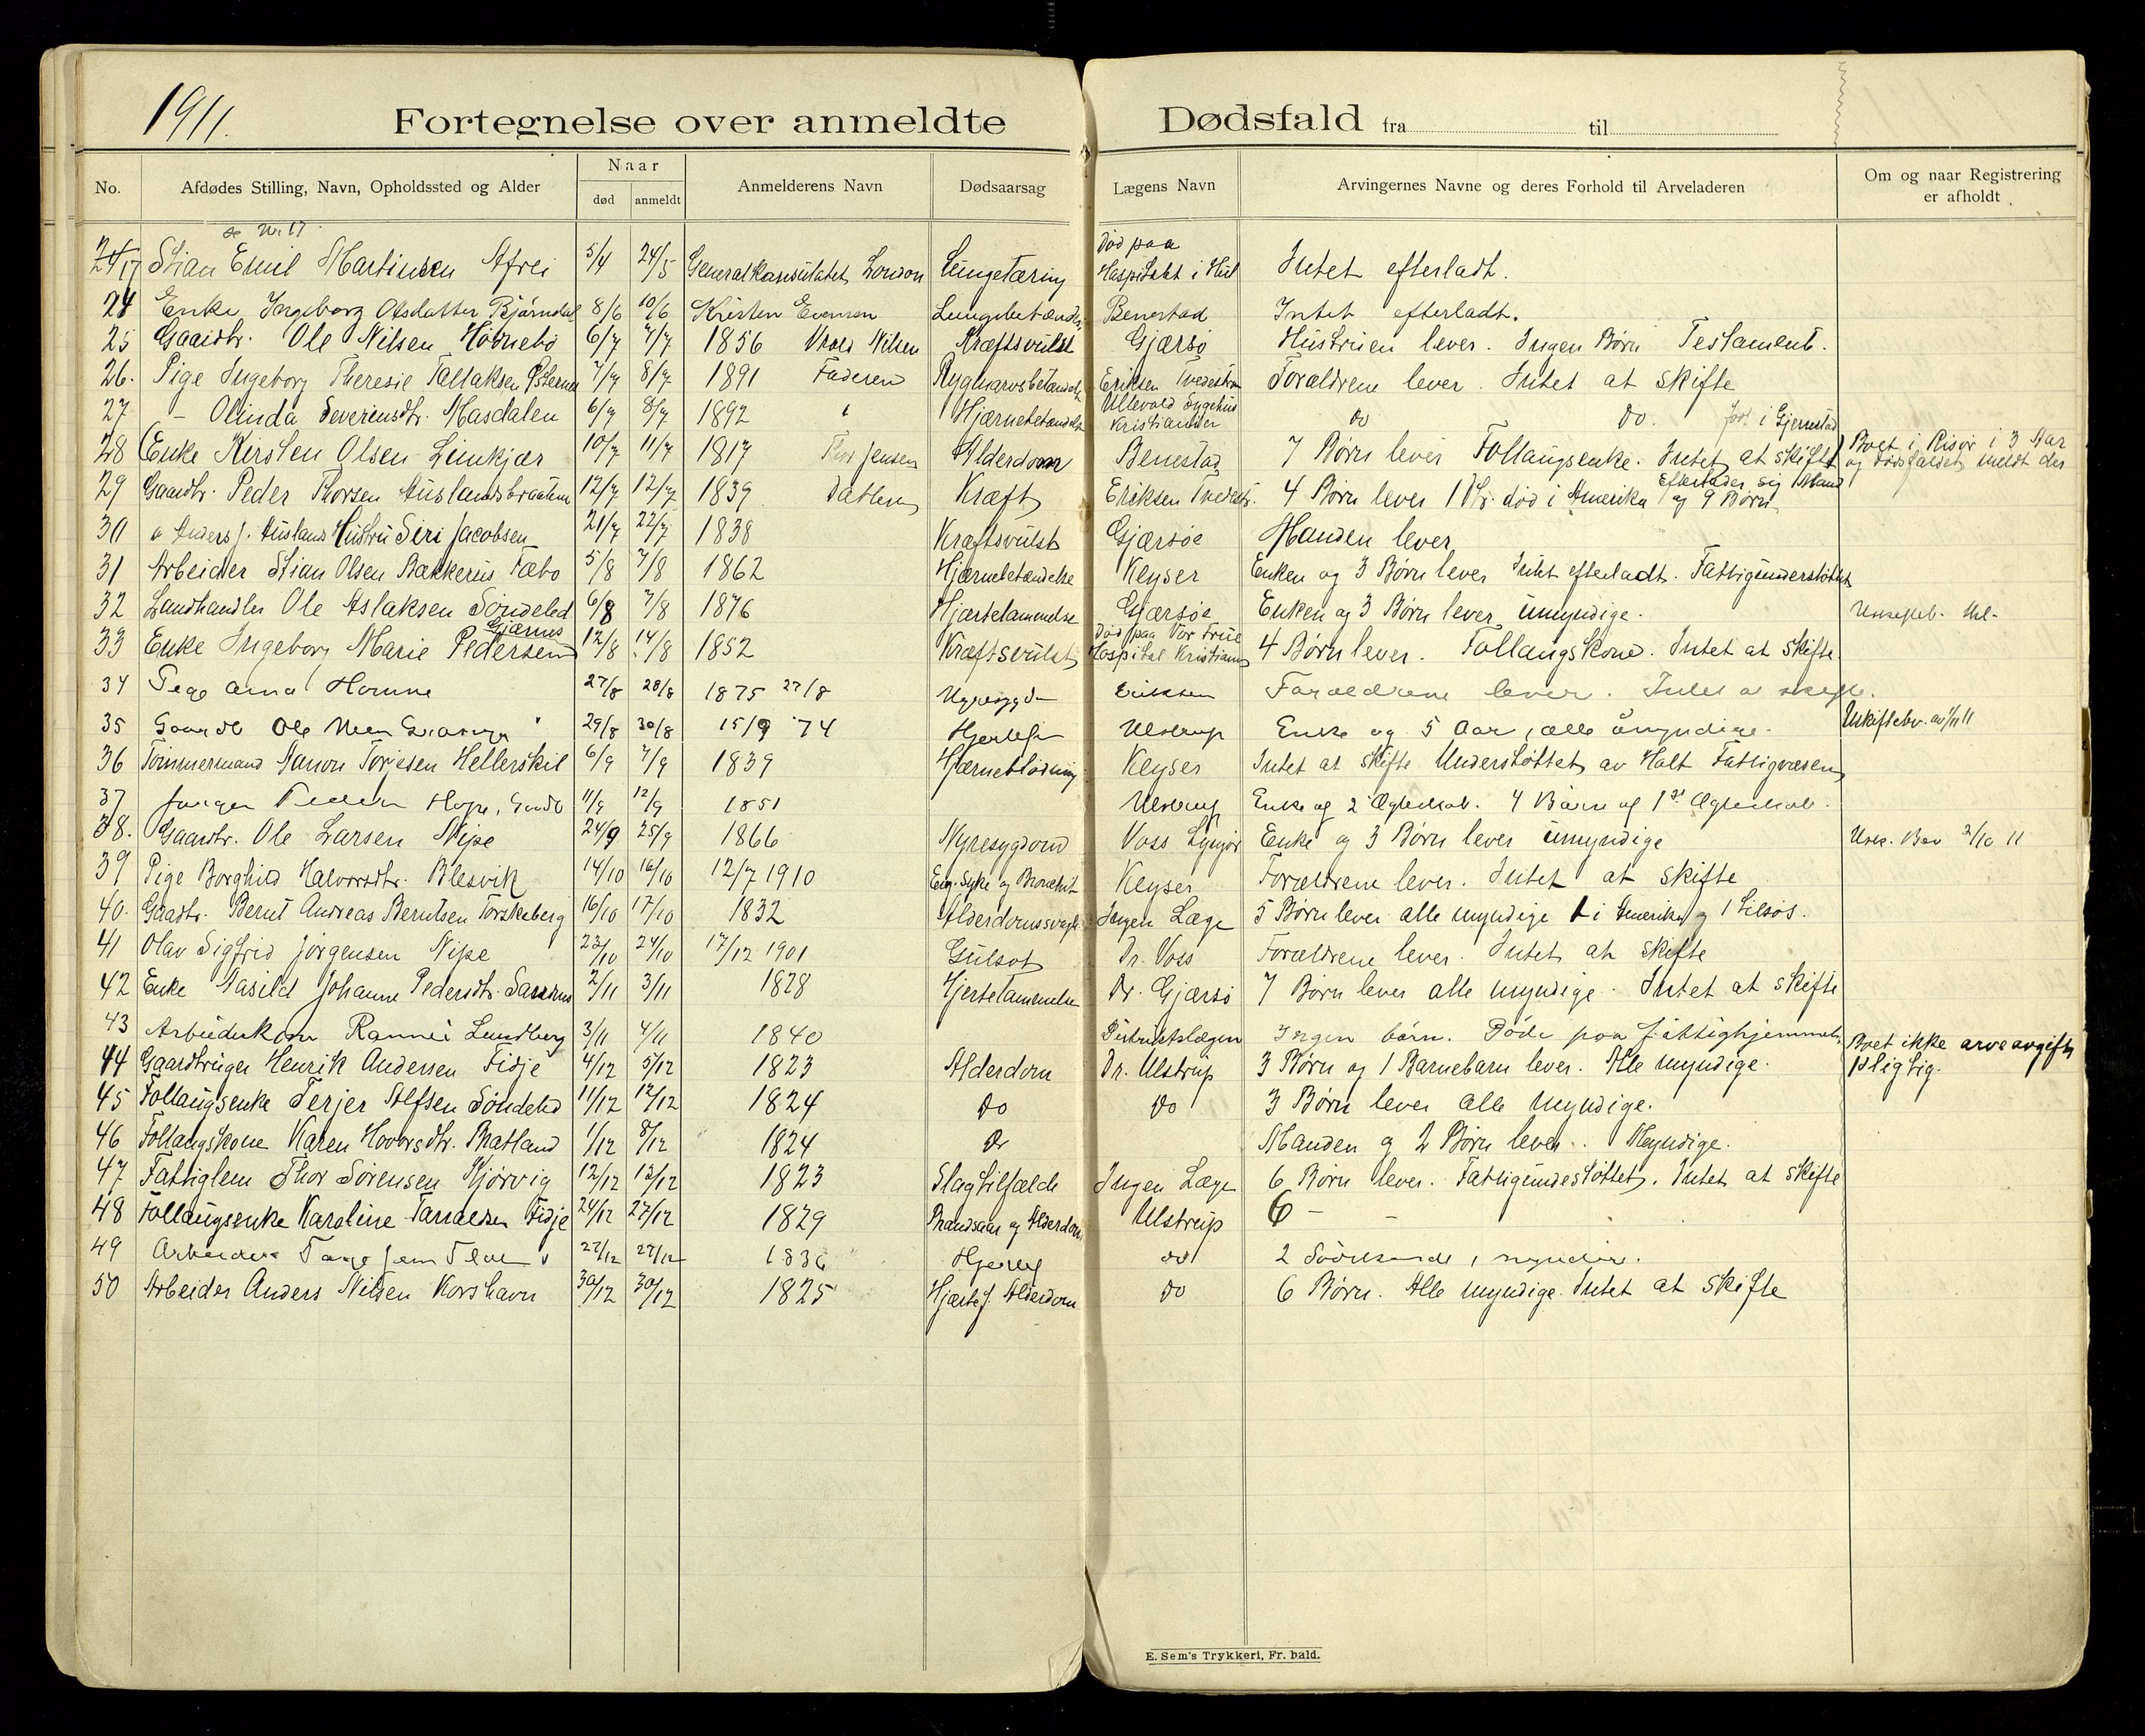 1911.
Fortegnelse over anmeldte Dødsfald fra til
No. Afdødes Stilling, Navn, Opholdssted og Alder Naar død anmeldt Anmelderens Navn Dødsaarsag Lægens Navn Arvingernes Navne og deres Forhold til Arveladeren Om og naar Registrering er afholdt
se Nr. 17
24/17 Stian Emil Martinsen Afrei 5/4 24/5 Generalkonsulatet London Lungetæring Død paa Hospitalet i Hul Intet efterladt.
24 Enke Ingeborg Olsdatter Bjørndal 8/6 10/6 Kristen Evensen Lungebetændelse Benestad Intet efterladt.
25 Gaardbr. Ole Nilsen Hovnebø 6/7 7/7 1856 Nilsen Kræftsvülst Gjærsø Hustruen lever. Ingen Børn Testament.
26. Pige Ingeborg Theresie Tallaksen 7/7 8/7 1891 Faderen Rygmarvsbetændelse Eriksen Tvedestrand Forældrene lever. Intet at skifte
27 - Olinda Severinsdtr. Masdalen 6/7 8/7 1892 " Hjærnebetændelse Ullevold Sygehus Kristiania do do. i Gjerrestad
28 Enke Kirsten Olsen Limkjær 10/7 11/7 1817 Thor Jensen Alderdom Benestad 7 Børn lever Follaugsenke. Intet at skifte Boet i Risør i 3 Aar og dødsfaldet meldt der
29 Gaardbr. Peder Thorsen Auslandsbraaten 12/7 12/7 1839 Datteren Kræft Eriksen Tvedestr. 4 Børn lever 1 Dtr. død i Amerika Efterlader sig Mand og 9 Børn
30 Anders J. Ausland Hustru Siri Jacobsen 21/7 22/7 1838 Kræftsvülst Gjærsøe Manden lever
31 Arbeider Stian Olsen Bakkerus Fæbo 5/8 7/8 1862 Hjærnebetændelse Keyser Enken og 3 Børn lever Intet efterladt. Fattigunderstøttet
32 Landhandler Ole Aslaksen Søndeled 6/8 7/8 1876 Hjærtelammelse Gjærsøe Enken og 3 Børn lever umyndige.
33 Enke Ingeborg Marie Pedersen Gjærnes 12/8 14/8 1852 Kræftsvülst Død paa Vor Frue Hospital Kristiania 4 Børn lever. Follaugskone. Intet at skifte.
34 Pige Anna Homme 27/8 28/8 1875 27/8 Nyresygd Eriksen Forældrene lever. Intet at skifte.
35 Gaardb Ole 29/8 30/8 15/9 74 Hjertefeil Ulstrup Enke og 5 Aar, alle umyndige. Uskiftebev. av
36 Tømmermand Aanon Torjesen Hellerskil 6/9 7/9 1839 Hjærneblødning Keyser Intet at skifte Understøttet av Holt Fattigvæsen
37 Jørgen Pedersen Hope, Gaardb 11/9 12/9 1851 Ulstrup Enke og 2 Ægteskab. 4 Børn af 1ste Ægteskab.
38. Gaardbr. Ole Larsen Nipe 24/9 25/9 1866 Nyresygdom Voss Lyngør Enke og 3 Børn lever umyndige Usk. Bev 2/10 11
39 Pige Borghild Halvorsdtr. Blesvik 14/10 16/10 12/7 1910 Eng. Syke og Bronchit Keyser Forældrene lever. Intet at skifte
40. Gaadbr. Bernt Andreas Berntsen Torskeberg 16/10 17/10 1832 Alderdomssvagh. Ingen Læge 5 Børn lever alle myndige 1 i Amerika og 1 tilsøs.
41 Olav Sigfrid Jørgensen Nipe 23/10 24/10 17/12 1901 Gulsot Dr. Voss Forældrene lever. Intet at skifte
42 Enke Aasild Johanne Pedersdtr. 2/11 3/11 1828 Hjertelammelse Dr. Gjærsø 7 Børn lever alle myndige. Intet at skifte
43 Arbeiderkone Rannei Lundberg 3/11 4/11 1840 Distriktslægen Ingen børn. Døde paa fattighjemmet
44 Gaardbruger Henrik Andersen Fidje 4/12 5/12 1823 Alderdom Dr. Ulstrup 3 Børn og 1 Barnebarn lever. Alle myndige. Boet ikke arveavgifts pligtig.
45 Follaugsenke Terjer Alfsen Søndeled 11/12 12/12 1824 do do 3 Børn lever alle myndige.
46 Follaugskone Karen Hovorsdtr. Bratland 1/12 8/12 1824 do Manden og 2 Børn lever. Myndige.
47 Fattiglem Thor Sørensen Kjørvig 12/12 13/12 1823 Slagtilfælde Ingen Læge 6 Børn lever. Fattigunderstøttet. Intet at skifte
48 Follaugsenke Karoline Tarraldsen Fidje 24/12 27/12 1829 Brandsaar og Alderdom Ulstrup 6 - -
49 Arbeider 27/12 27/12 1836 do 2 , myndige.
50 Arbeider Anders Nilsen Korshavn 30/12 30/12 1825 Hjærtef. Alderdom do 6 Børn. Alle myndige. Intet at skifte
E. Sem's Trykkeri, Fr. hald.